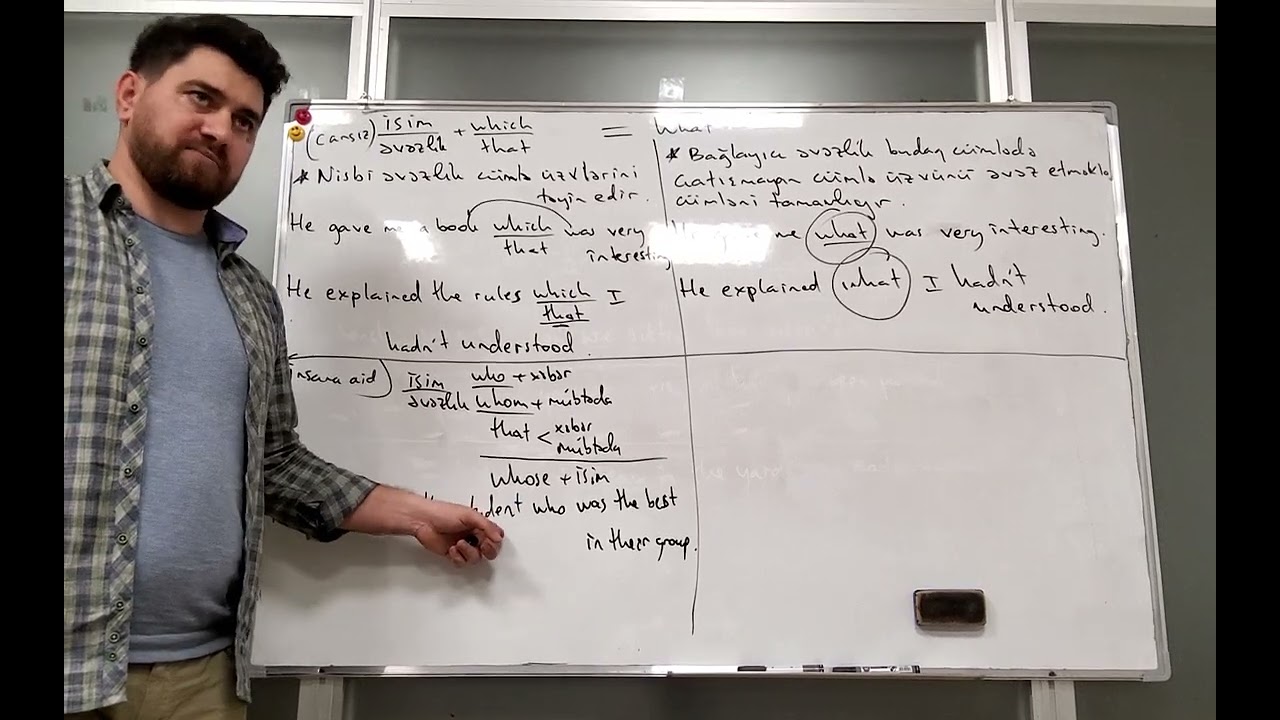 (cansız) isim + which = what
əvəzlik that
* Nisbi əvəzlik cümlə üzvlərini
təyin edir.
He gave me a book which was very
that interesting
He explained the rules which I
that
hadn't understood.
* Bağlayıcı əvəzlik budaq cümlədə
çatışmayan cümlə üzvünü əvəz etməklə
cümləni tamamlayır.
me what was very interesting.
He explained what I hadn't
understood.
insana aid) isim who + xəbər
əvəzlik whom + mübtəda
that < xəbər
mübtəda
whose + isim
who was the best
in their group.